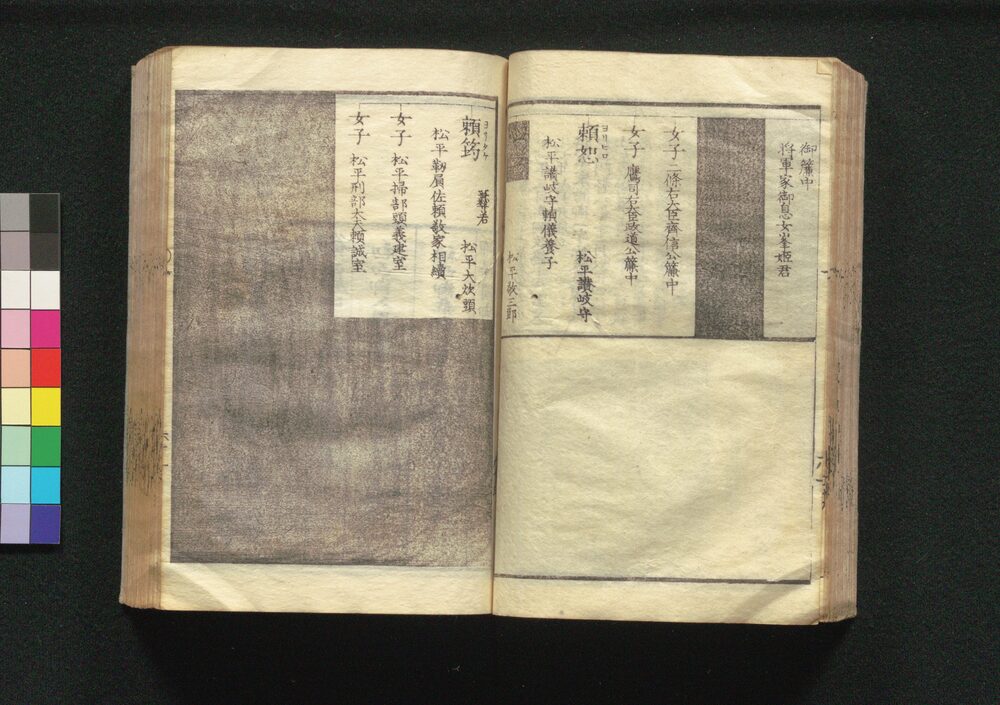 御簾中
将軍家御息女峯姫君
女子 二條右大臣齊信公簾中
女子 鷹司右大臣政通公簾中
ヨリヒロ
頼恕 松平讃岐守
松平讃岐守頼儀養子
松平敬三郎
ヨリカタ
頼筠 松平大炊頭
松平靭屓佐頼敬家相續
女子 松平掃部頭義建室
女子 松平刑部大夫頼誠室